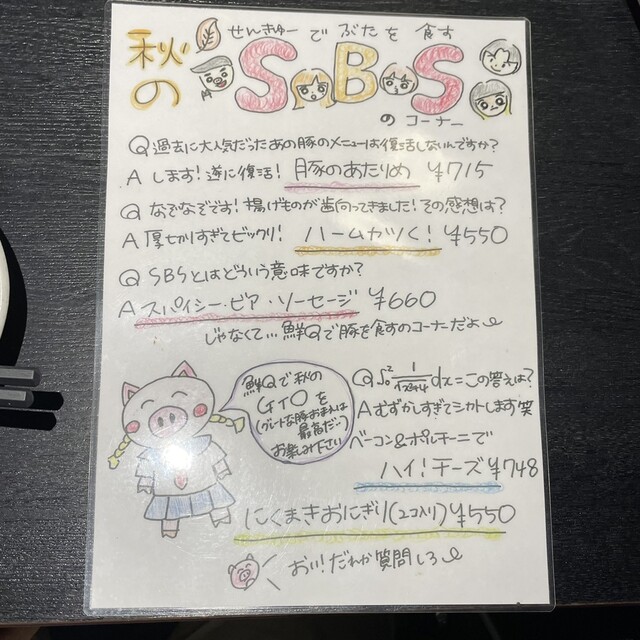 秋の
せんきゅーでぶたを食す
S.B.S
のコーナー
Q 過去に大人気だったあの豚のメニューは復活しないんですか?
A します!遂に復活! 豚のあたりめ ¥715
Q なぞなぞです!揚げものが歯向ってきました!その感想は?
A 厚切りすぎてビックリ! ハームカツく! ¥550
Q SBSとはどういう意味ですか?
A スパイシー・ビア・ソーセージ ¥660
じゃなくて…鮮Qで豚を食すのコーナーだよ
鮮Qで秋の
GTOを
(グレートな豚おまえは
最高だ)
お楽しみ下さい
Q ∫₀² 1/√x²+4 dx = この答えは?
A むずかしすぎてシカトします笑
ベーコン&ポルチーニで
ハイ!チーズ ¥748
にくまきおにぎり(2コ入り) ¥550
おい!だれか質問しろ